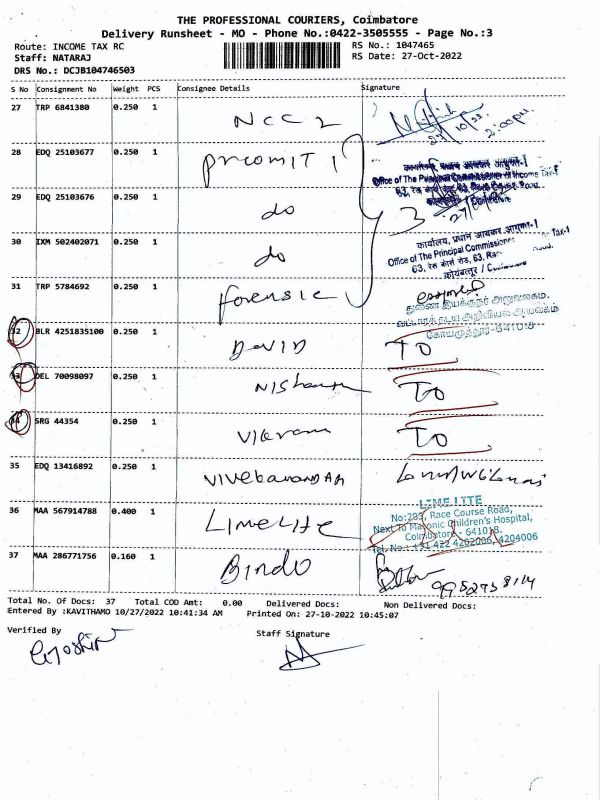 THE PROFESSIONAL COURIERS, Coimbatore
Delivery Runsheet - MO - Phone No.:0422-3505555 - Page No.:3
Route: INCOME TAX RC
RS No.: 1047465
Staff: NATARAJ
RS Date: 27-Oct-2022
DRS No.: DCJB104746503
S No Consignment No Weight PCS Consignee Details Signature
27 TRP 6841380 0.250 1 NCC 2
27/10/22
2:00pm
28 EDQ 25103677 0.250 1
कार्यालय, प्रधान आयकर आयुक्त-I
Office of The Principal Commissioner of Income Tax-I
29 EDQ 25103676 0.250 1 do 3
30 IXM 502402071 0.250 1 do
कार्यालय, प्रधान आयकर आयुक्त-I
Office of The Principal Commissioner Tax-I
63, रेस कोर्स रोड, 63, Road.
कोयंबत्तूर /
31 TRP 5784692 0.250 1 forensic
துணை இயக்குநர் அலுவலகம்,
வட்டார தடய அறிவியல் ஆய்வகம்
கோயமுத்தூர்-641018
32 BLR 4251835100 0.250 1 DAVID TO
33 DEL 70098097 0.250 1 Nishanth TO
34 SRG 44354 0.250 1 Vikram TO
35 EDQ 13416892 0.250 1 Vivekanandan
36 MAA 567914788 0.400 1 LIMELITE
LIME LITE
No:283, Race Course Road,
Next To Masonic Children's Hospital,
Coimbatore - 641018.
Tel. No.: +91 422 4202006, 4204006
37 MAA 286771756 0.160 1 Bindo
Total No. Of Docs: 37 Total COD Amt: 0.00 Delivered Docs: Non Delivered Docs:
Entered By :KAVITHAMO 10/27/2022 10:41:34 AM Printed On: 27-10-2022 10:45:07
Verified By
Staff Signature